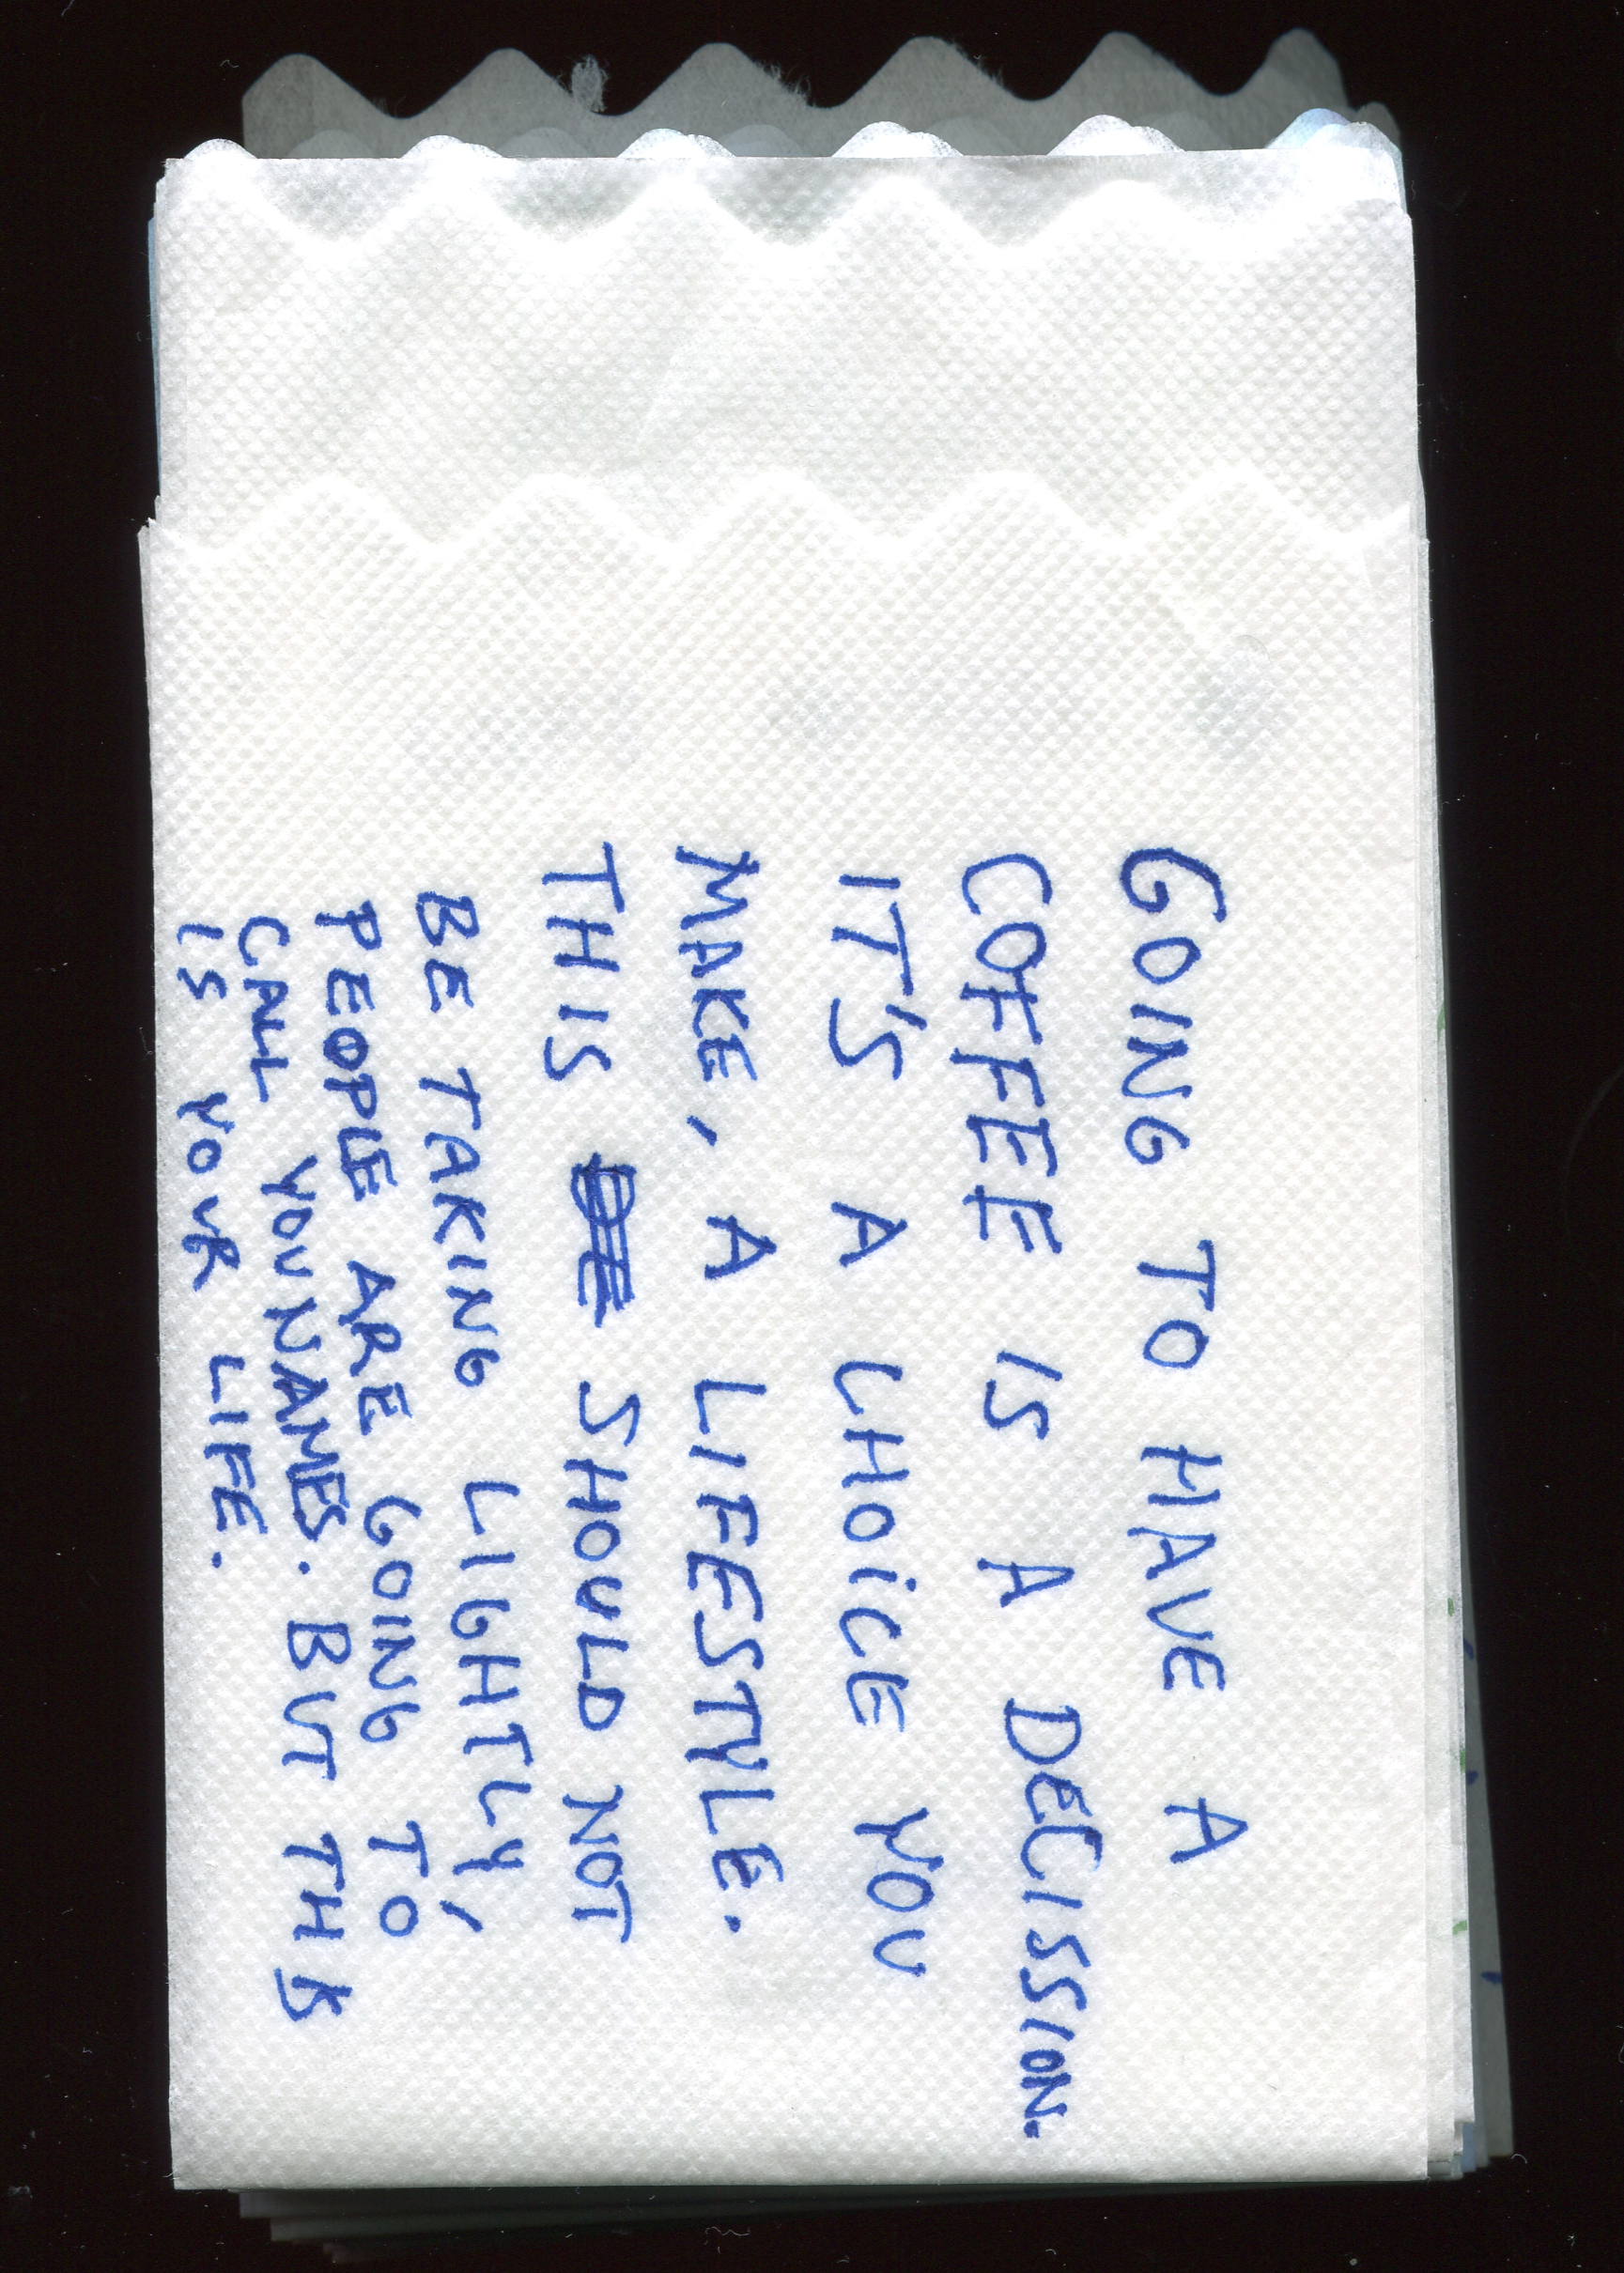 GOING TO HAVE A
COFFEE IS A DECISSION.
IT'S A CHOiCE YOU
MAKE, A LIFESTYLE.
THIS SHOULD NOT
BE TAKING LIGHTLY,
PEOPLE ARE GOING TO
CALL YOU NAMES. BUT THIS
IS YOUR LIFE.